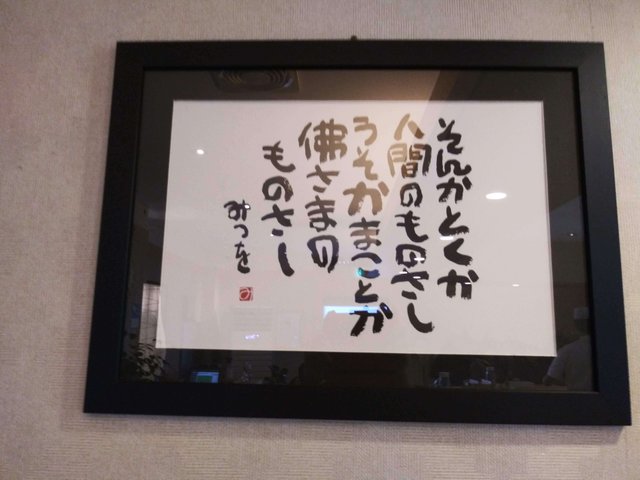 そんかとくか
人間のものさし
うそかまことか
佛さまの
ものさし
みつを